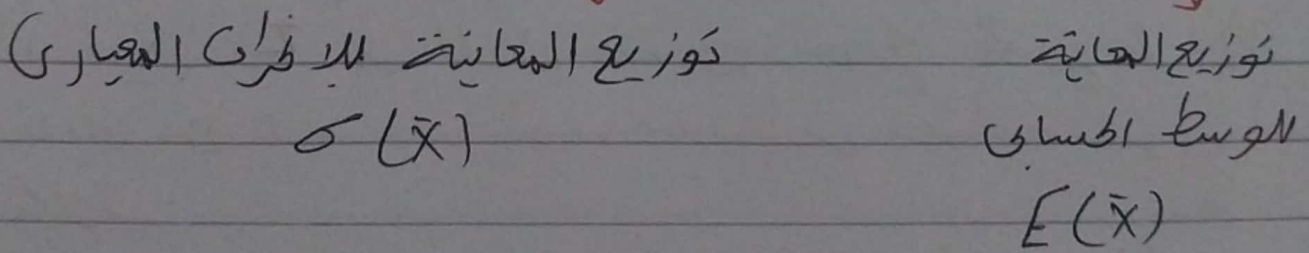 توزيع المعاينة
للوسط الحسابى
E(x̄)
توزيع المعاينة للإنحراف المعيارى
σ(x̄)